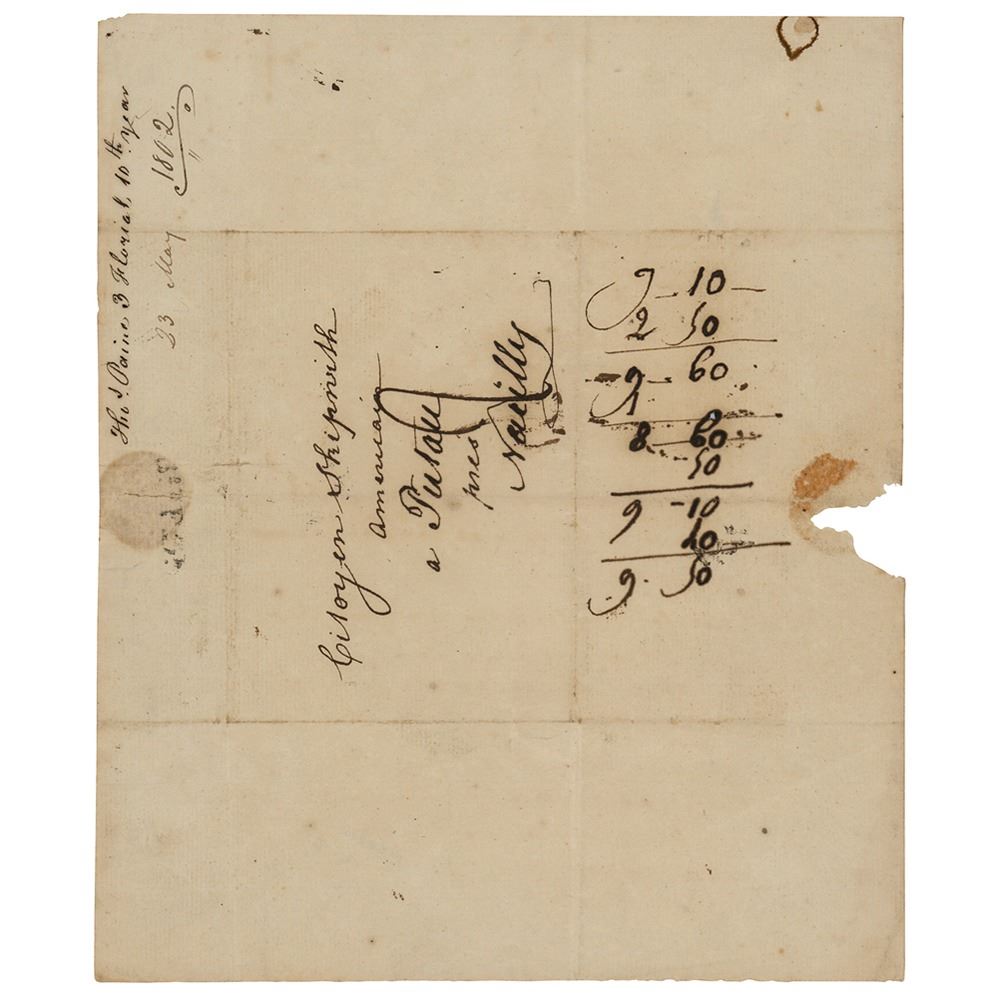 Thos Paine 3 Florial, 10th year
23 May 1802.
Citoyen Skipwith
Americain
a Putau
pres
Naeilly
9 - 10 -
2 50
9 - 60
1
8 60
50
9 - 10
60
9. 50